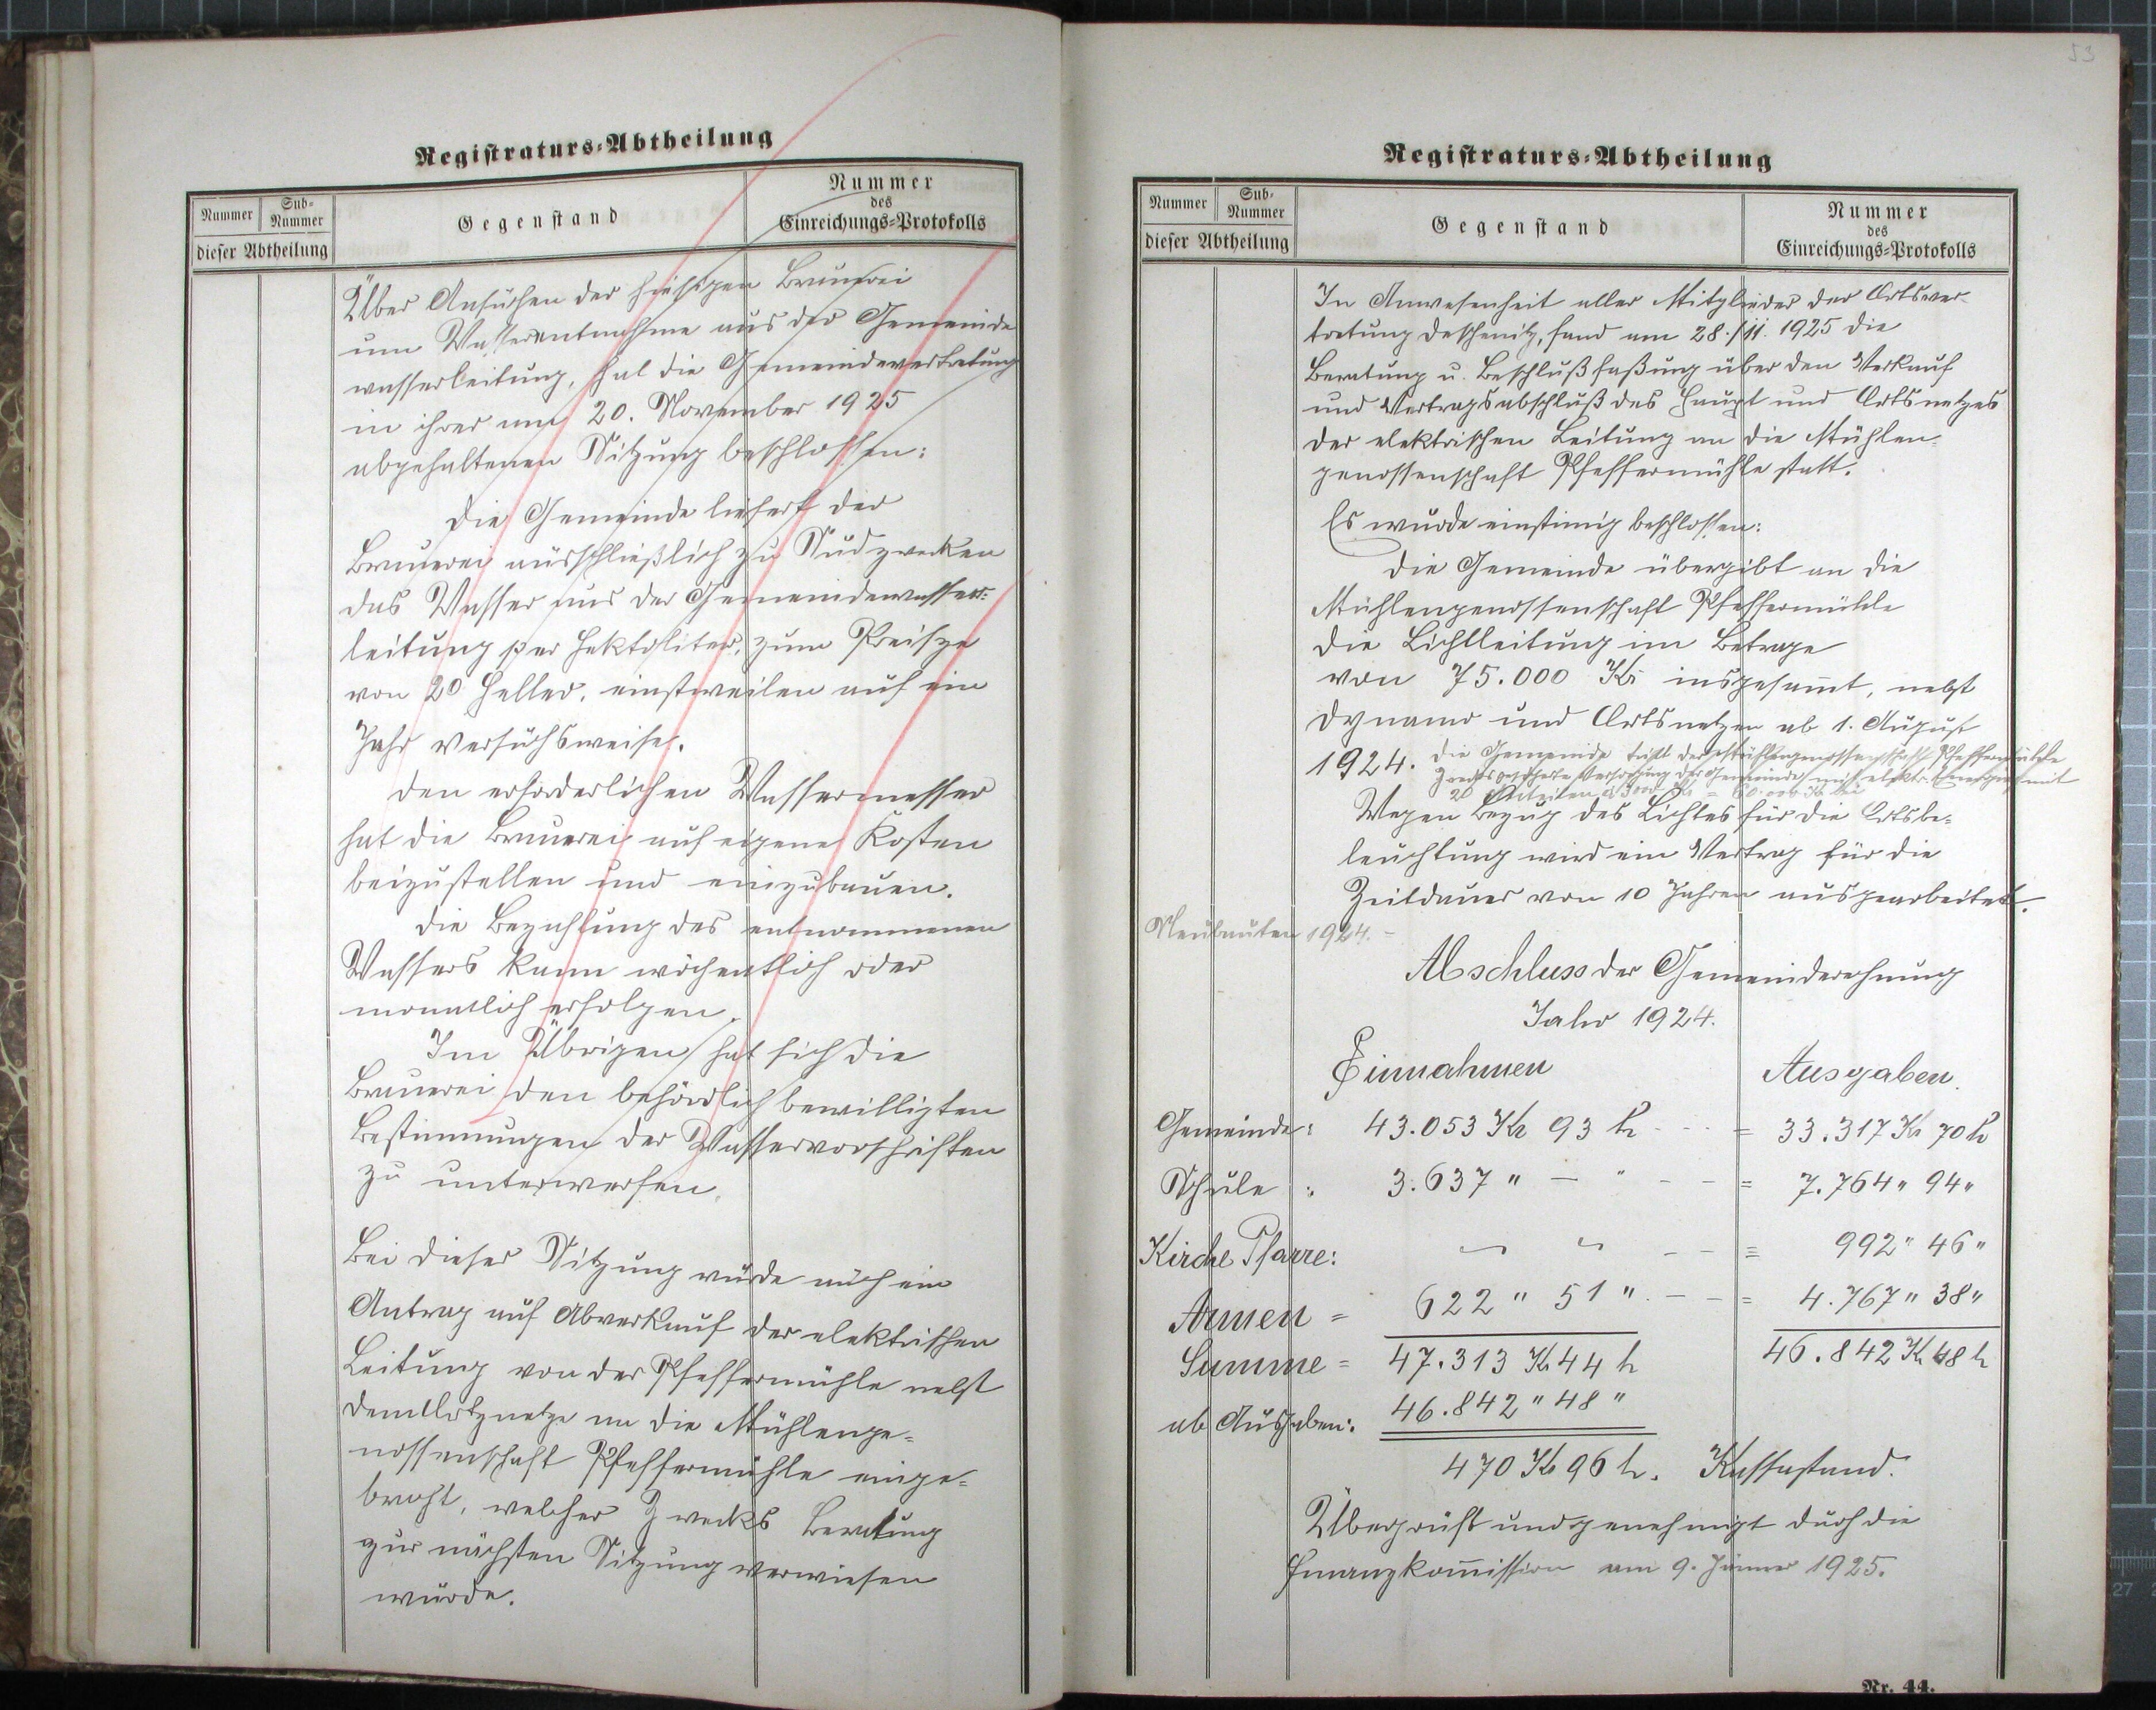 Registraturs-Abtheilung
Nummer
Sub-
Nummer
dieser Abtheilung
Gegenstand
Nummer
des
Einreichungs-Protokolls
Über Ansuchen der hiesigen Brauerei
um Wasserentnahme aus der Gemeinde
wasserleitung, hat die Gemeindevertretung
in ihrer am 20. November 1925
abgehaltenen Sitzung beschlossen:
Die Gemeinde liefert der
Brauerei ausschließlich zu Sudzwecken
das Wasser aus der Gemeindewasser-
leitung per Hektoliter, zum Preise
von 20 Heller, einstweilen auf ein
Jahr versuchsweise.
Den erforderlichen Wassermesser
hat die Brauerei auf eigene Kosten
beizustellen und einzubauen.
Die Bezahlung des entnommenen
Wassers kann wöchentlich oder
monatlich erfolgen.
Im Übrigen hat sich die
Brauerei den behördlich bewilligten
Bestimmungen der Wasservorschriften
zu unterwerfen.
Bei dieser Sitzung wurde auch ein
Antrag auf Abverkauf der elektrischen
Leitung von der Pfeffermühle nebst
dem Ortsnetze an die Mühlenge-
nossenschaft Pfeffermühle einge-
bracht, welcher Zwecks Beratung
zur nächsten Sitzung verwiesen
wurde.
53
Registraturs-Abtheilung
Nummer
Sub-
Nummer
dieser Abtheilung
Gegenstand
Nummer
des
Einreichungs-Protokolls
In Anwesenheit aller Mitglieder der Ortsver-
tretung Deschenitz, fand am 28./11. 1925 die
Beratung u. Beschlußfaßung über den Verkauf
und Vertragsabschluß des Haupt und Ortsnetzes
der elektrischen Leitung an die Mühlen-
genossenschaft Pfeffermühle statt.
Es wurde einstimig beschlossen:
Die Gemeinde übergibt an die
Mühlengenossenschaft Pfeffermühle
die Lichtleitung im Betrage
von 75.000 Kč insgesamt, nebst
Dynamo und Ortsnetzen ab 1. August
1924. Die Gemeinde tritt der Mühlengenossenschaft Pfeffermühle
Zwecks gesicherte Versorgung der Gemeinde mit elektr. Energie mit
20 Anteilen à 3000 Kč = 60.000 Kč bei
Wegen Bezug des Lichtes für die Ortsbe-
leuchtung wird ein Vertrag für die
Zeitdauer von 10 Jahren ausgearbeitet.
Neubauten 1924. -
Abschluss der Gemeinderechnung
Jahr 1924.
Einnahmen Ausgaben.
Gemeinde: 43.053 Kč 93 h - - - = 33.317 Kč 70 h
Schule : 3.637 " — " - - = 7.764 " 94 "
Kirche Pfarre: - - = 992 " 46 "
Armen = 622 " 51 " - - = 4.767 " 38 "
Summe = 47.313 Kč 44 h 46.842 Kč 48 h
ab Ausgaben: 46.842 " 48 "
470 Kč 96 h. Kassastand.
Überprüft und genehmigt durch die
Finanzkomission am 9. Jänner 1925.
Nr. 44.
27